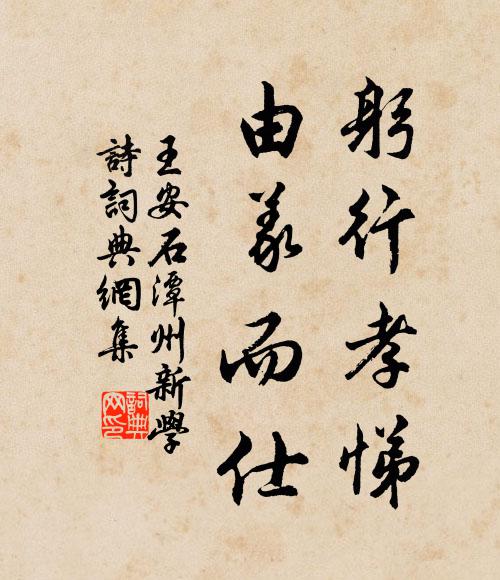 躬行孝悌
由義而仕
王安石潭州新學
詩詞典網集
詞典网印